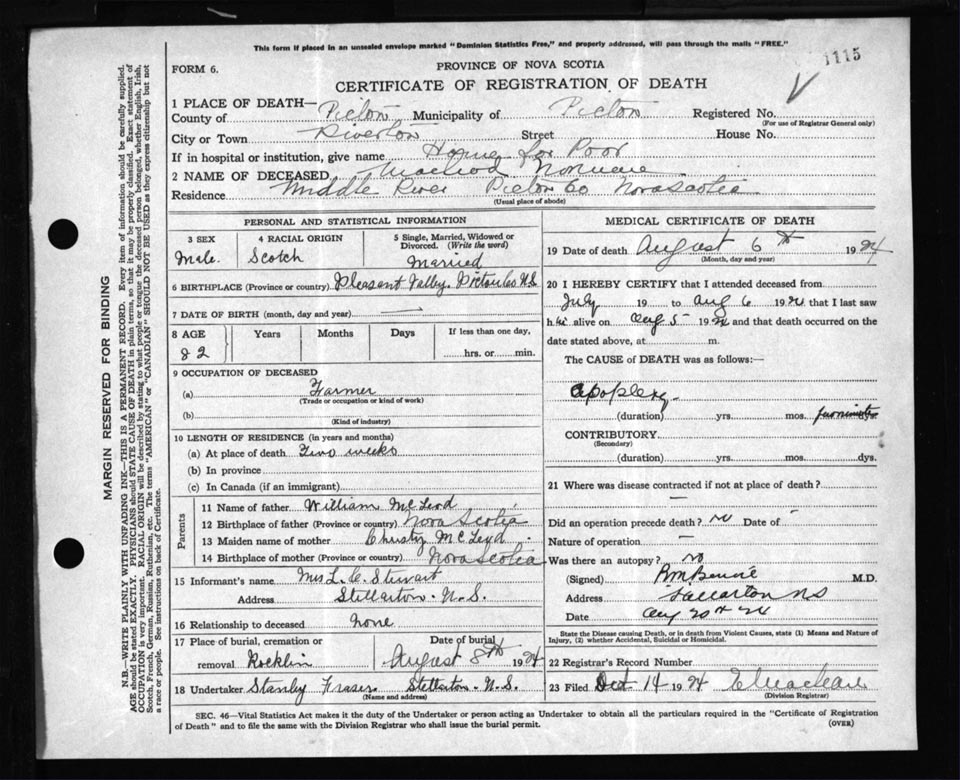 This form if placed in an unsealed envelope marked "Dominion Statistics Free," and properly addressed, will pass through the mails "FREE."
1115
PROVINCE OF NOVA SCOTIA
FORM 6.
CERTIFICATE OF REGISTRATION OF DEATH
1 PLACE OF DEATH—
County of Pictou Municipality of Pictou Registered No.
(For use of Registrar General only)
City or Town Riverton Street House No.
If in hospital or institution, give name Home for Poor
2 NAME OF DECEASED Macleod
Residence Middle River Pictou Co Nova Scotia
(Usual place of abode)
PERSONAL AND STATISTICAL INFORMATION
3 SEX 4 RACIAL ORIGIN 5 Single, Married, Widowed or Divorced. (Write the word)
Male. Scotch Married
6 BIRTHPLACE (Province or country) Pleasant Valley. Pictou Co N.S.
7 DATE OF BIRTH (month, day and year) —
8 AGE Years Months Days If less than one day,
82 hrs. or min.
9 OCCUPATION OF DECEASED
(a) Farmer
(Trade or occupation or kind of work)
(b)
(Kind of industry)
10 LENGTH OF RESIDENCE (in years and months)
(a) At place of death Two weeks
(b) In province
(c) In Canada (if an immigrant)
Parents
11 Name of father William McLeod
12 Birthplace of father (Province or country) Nova Scotia
13 Maiden name of mother Christy McLeod
14 Birthplace of mother (Province or country) Nova Scotia
15 Informant's name Mrs L. C. Stewart
Address Stellarton. N.S.
16 Relationship to deceased none
17 Place of burial, cremation or removal Rocklin
Date of burial August 8th 1924
18 Undertaker Stanley Fraser Stellarton. N.S.
(Name and address)
MEDICAL CERTIFICATE OF DEATH
19 Date of death August 6th 1924
(Month, day and year)
20 I HEREBY CERTIFY that I attended deceased from
July 19 to Aug 6 1924 that I last saw
him alive on Aug 5 1924 and that death occurred on the
date stated above, at m.
The CAUSE OF DEATH was as follows:
Apoplexy
(duration) yrs. mos. dys.
CONTRIBUTORY
(Secondary)
(duration) yrs. mos. dys.
21 Where was disease contracted if not at place of death?
—
Did an operation precede death? No Date of -
Nature of operation —
Was there an autopsy? No
(Signed) M.D.
Address Stellarton NS
Date Aug 20th 24
State the Disease causing Death, or in death from Violent Causes, state (1) Means and Nature of Injury, (2) whether Accidental, Suicidal or Homicidal.
22 Registrar's Record Number
23 Filed Oct 14 1924
(Division Registrar)
SEC. 46—Vital Statistics Act makes it the duty of the Undertaker or person acting as Undertaker to obtain all the particulars required in the "Certificate of Registration
of Death" and to file the same with the Division Registrar who shall issue the burial permit.
(OVER)
MARGIN RESERVED FOR BINDING
N.B.—WRITE PLAINLY WITH UNFADING INK—THIS IS A PERMANENT RECORD. Every item of information should be carefully supplied.
AGE should be stated EXACTLY. PHYSICIANS should STATE CAUSE OF DEATH in plain terms, so that it may be properly classified. Exact statement of
OCCUPATION is very important. RACIAL ORIGIN will be described by stating to what people or tongue the deceased person belonged, whether English, Irish,
Scotch, French, German, Russian, Ruthenian, etc. The terms "AMERICAN" or "CANADIAN" SHOULD NOT BE USED as they express citizenship but not
a race or people. See instructions on back of Certificate.